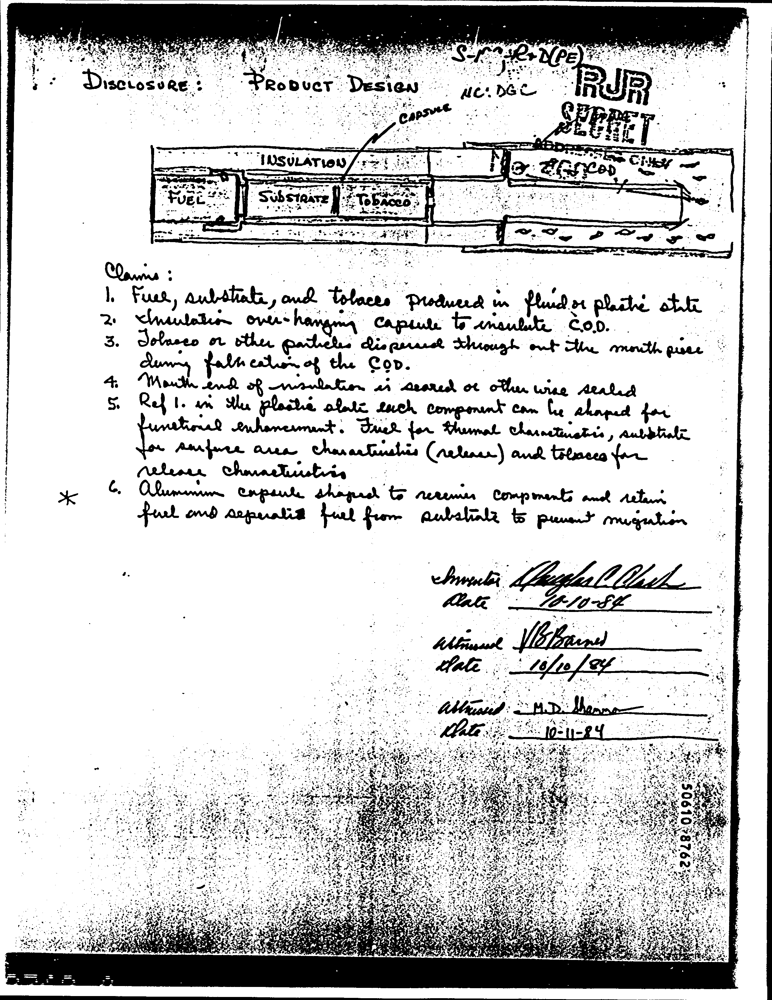 R+D(PE)
DISCLOSURE: PRODUCT DESIGN
NC: DGC
RJR
SECRET
CAPSULE
ADDRESSEE ONLY
INSULATION
COD
FUEL SUBSTRATE TOBACCO
Claims:
1. Fuel, substrate, and tobacco produced in fluid or plastic state
2. Insulation over-hanging capsule to insulate C.O.D.
3. Tobacco or other particles dispersed through out the mouth piece
during fabrication of the COD.
4. Mouth end of insulation is seared or other wise sealed
5. Ref 1. in the plastic state each component can be shaped for
functional enhancement. Fuel for thermal characteristics, substrate
for surface area characteristics (release) and tobacco for
release characteristics
* 6. Aluminum capsule shaped to receive components and retain
fuel and seperate fuel from substrate to prevent migration
Inventor Douglas C
Date 10-10-84
Witnessed VB Barnes
Date 10/10/84
Witnessed M.D. Shannon
Date 10-11-84
50610 8762